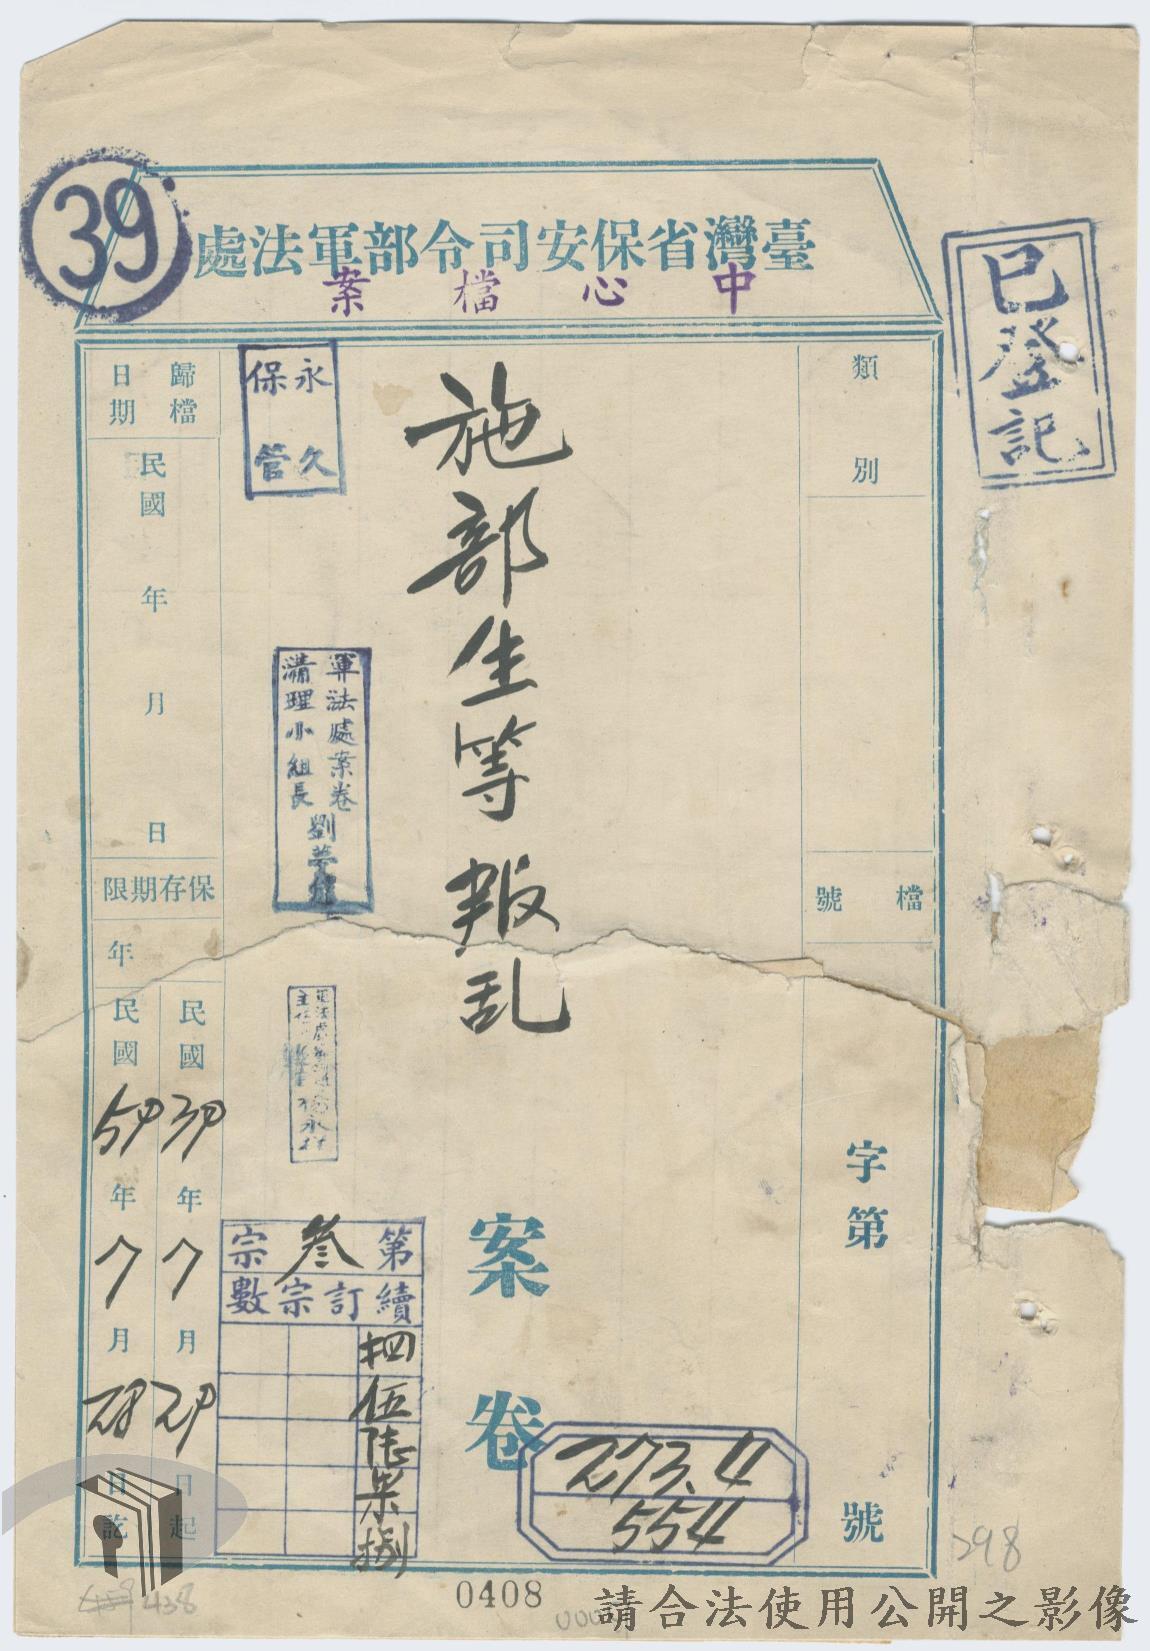 39
臺灣省保安司令部軍法處
中心檔案
已登記
類別
檔號
字第
號
施部生等叛乱
案卷
273.4
554
永久
保管
軍法處案卷
清理小組長
劉夢
第叁宗
續訂宗數
肆
伍
陸
柒
捌
歸檔
日期
民國 年 月 日
保存期限
年
民國39年7月29日起
民國59年7月28日訖
0408
438
298
請合法使用公開之影像